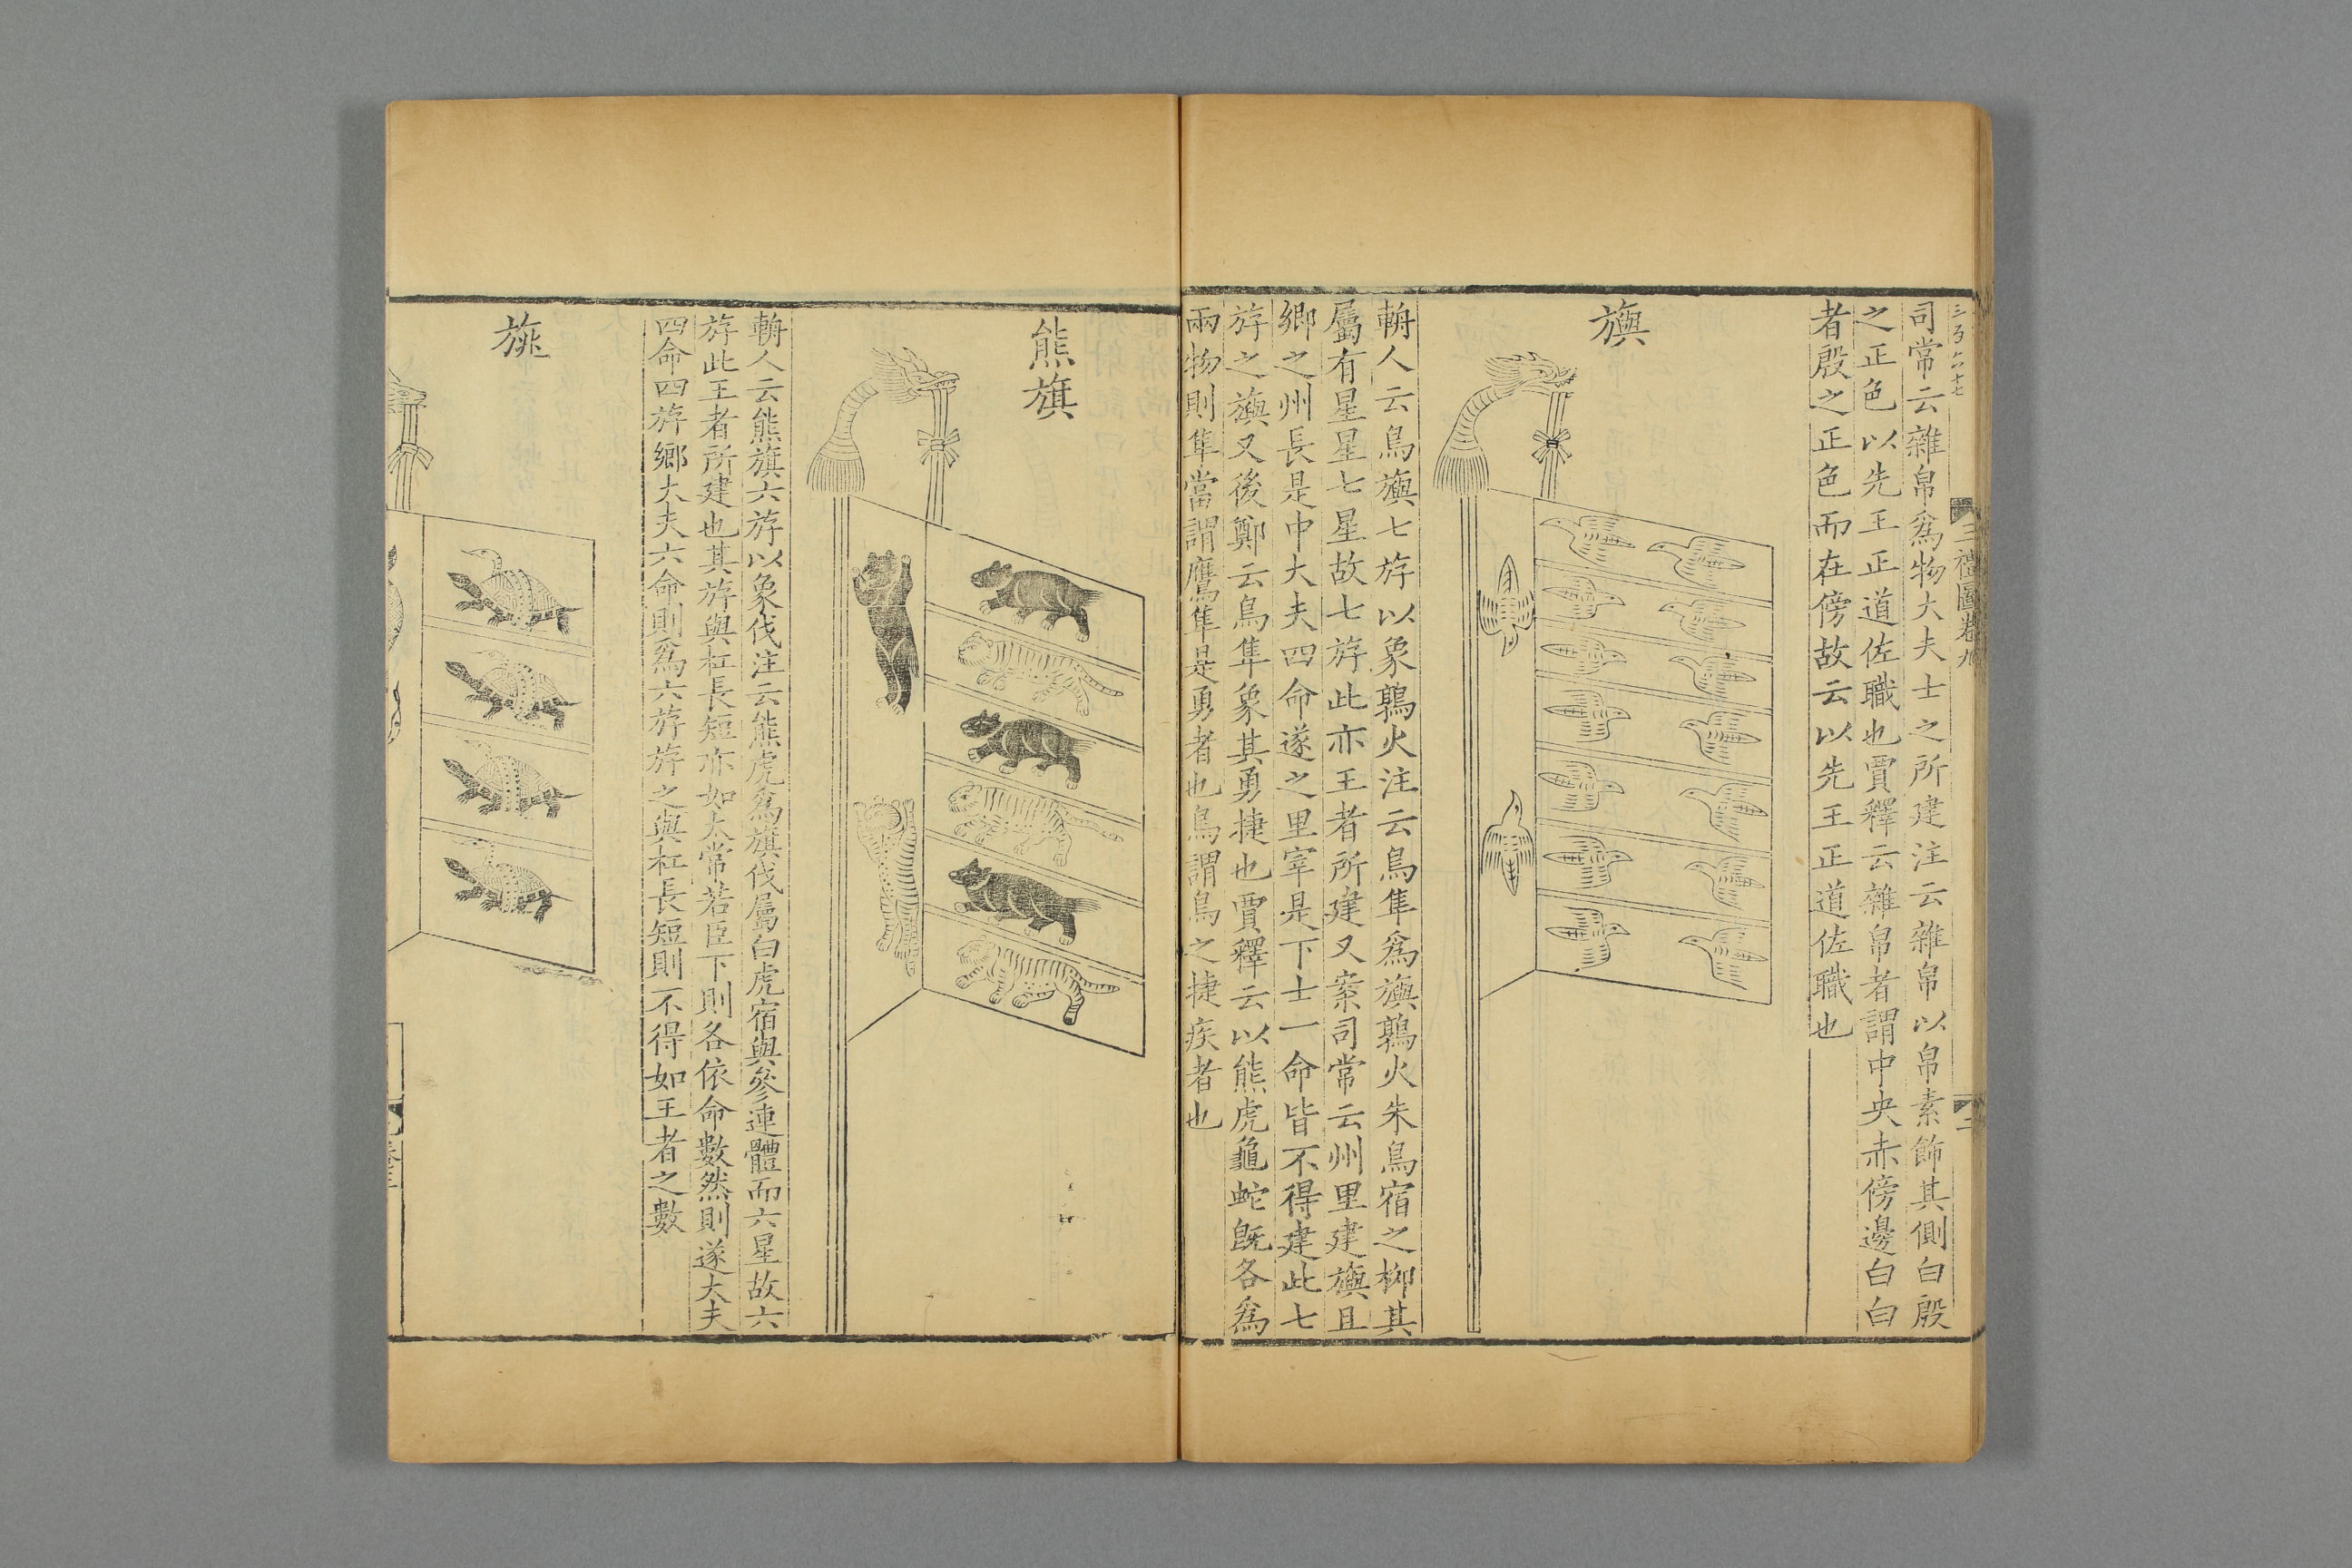 三禮圖卷九
二
司常云雜帛爲物大夫士之所建注云雜帛以帛素飾其側白殷
之正色以先王正道佐職也賈釋云雜帛者謂中央赤傍邊白白
者殷之正色而在傍故云以先王正道佐職也
旟
輈人云鳥旟七斿以象鶉火注云鳥隼爲旟鶉火朱鳥宿之柳其
屬有星星七星故七斿此亦王者所建又案司常云州里建旟且
鄉之州長是中大夫四命遂之里宰是下士一命皆不得建此七
斿之旟又後鄭云鳥隼象其勇捷也賈釋云以熊虎龜蛇旣各爲
兩物則隼當謂鷹隼是勇者也鳥謂鳥之捷疾者也
熊旗
輈人云熊旗六斿以象伐注云熊虎爲旗伐屬白虎宿與參連體而六星故六
斿此王者所建也其斿與杠長短亦如太常若臣下則各依命數然則遂大夫
四命四斿鄉大夫六命則爲六斿斿之與杠長短則不得如王者之數
旐